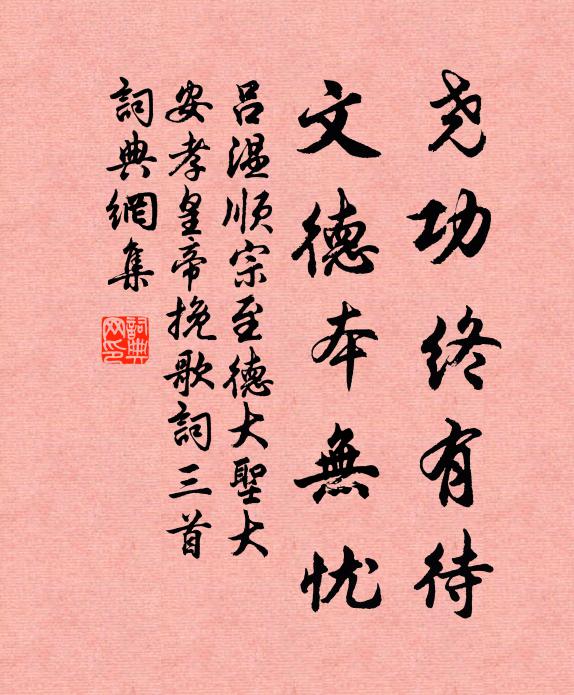 尧功终有待
文德本無忧
吕温顺宗至德大聖大
安孝皇帝挽歌詞三首
詞典網集
詞典
网印